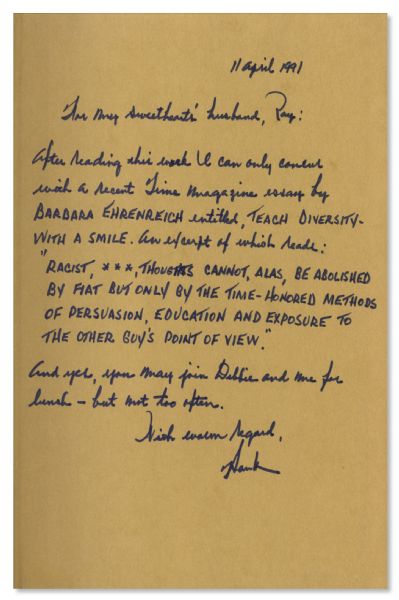 11 April 1991
For my sweetheart's husband, Ray:
After reading this work I can only concur
with a recent Time magazine essay by
BARBARA EHRENREICH entitled, TEACH DIVERSITY-
WITH A SMILE. An excerpt of which reads:
"RACIST, ***, THOUGHTS CANNOT, ALAS, BE ABOLISHED
BY FIAT BUT ONLY BY THE TIME-HONORED METHODS
OF PERSUASION, EDUCATION AND EXPOSURE TO
THE OTHER GUY'S POINT OF VIEW."
And yes, you may join Debbie and me for
lunch - but not too often.
With warm regard,
Hank